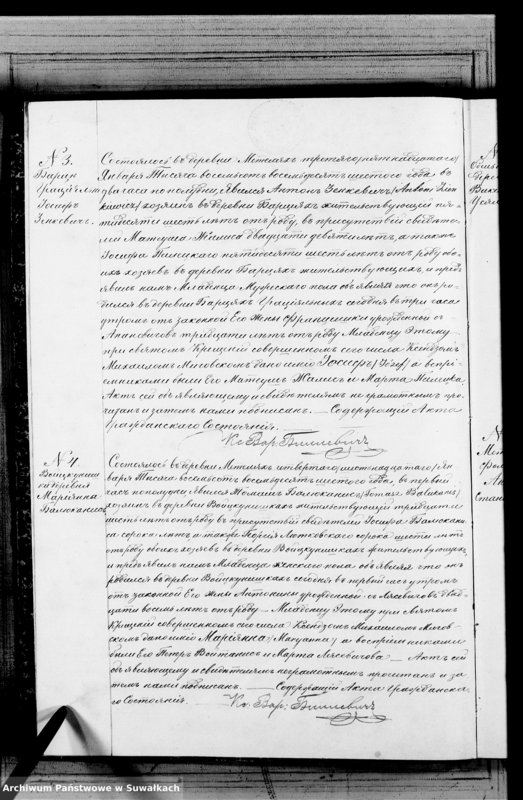 № 3.
Барцы
Грацiелли
Госифъ
Зенкевичъ.
Состоялось въ деревнѣ Метеляхъ третьяго/пятнадцатаго/
Января тысяча восемьсотъ восемьдесятъ шестого года, въ
два часа по полудни, явился Антонъ Зенкевичъ /Antoni Zien
kiewicz/ хозяинъ въ деревнѣ Барцяхъ жительствующiй пя-
тидесяти шесть лѣтъ отъ роду, въ присутствiи свидѣте-
лей Матеуша Жилиса двадцати девяти лѣтъ, а такжъ
Госифа пятидесяти шесть лѣтъ отъ роду обо-
ихъ хозяевъ въ деревнѣ Барцяхъ жительствующихъ, и предъ
явилъ намъ Младенца Мужескаго пола объявляя что онъ ро-
дился въ деревнѣ Барцяхъ сегодня въ три часа
утромъ отъ законной Его Жены Францишки урожденной
тридцати лѣтъ отъ роду Младенцу Этому
при святомъ Крещенiи совершенномъ сего числа Ксендзомъ
Михаиломъ дано имя Госифъ /Józef/ а воспрi-
емниками были Его Матеушъ Жилисъ и Марта
Актъ сей объявляющему и свидѣтелямъ не грамотнымъ про-
читанъ и затемъ нами подписанъ. — Содержащiй Акта
Гражданскаго Состоянiя.
Кс. Вар:
№ 4.
Войцкунишки деревня
Марiянна
Балюконисъ
Состоялось въ деревнѣ Метеляхъ четвертаго/шестнадцатаго/ Ян
варя тысяча восемьсотъ восемьдесятъ шестого года, въ первый
часъ пополудни явился Томашъ Балюконисъ /Tomasz Balukanis/
хозяинъ въ деревнѣ Войцкунишкахъ жительствующiй тридцати
шесть лѣтъ отъ роду въ присутствiи свидѣтелей Госифа Балюкани
са сорока лѣтъ а также сорока шести лѣтъ
отъ роду обоихъ хозяевъ въ деревнѣ Войцкунишкахъ жительствующихъ,
и предъявилъ намъ Младенца женскаго пола объявляя что онъ
родился въ деревнѣ Войцкунишкахъ сегодня въ первый часъ утромъ
отъ законной Его Жены Антонины урожденной двад-
цати восемь лѣтъ отъ роду — Младенцу Этому при Святомъ
Крещенiи совершенномъ сего числа Ксендзомъ Михаиломъ
дано имя Марiянна, а воспрiемниками
были Его Петръ и Марта — Актъ сей
объявляющему и свидѣтелямъ неграмотнымъ прочитанъ и за
темъ нами подписанъ. — Содержащiй Акта Гражданска-
го Состоянiя.
Кс. Вар:
Archiwum Państwowe w Suwałkach